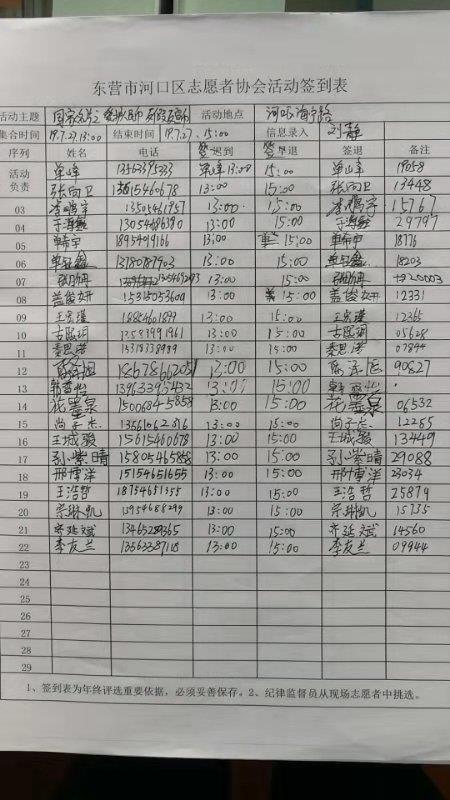 东营市河口区志愿者协会活动签到表
活动主题 活动地点 河口
集合时间 19.7.27 13:00 结束时间 19.7.27. 15:00 信息录入 刘静
序列 姓名 电话 签到 签早退 签退 备注
活动 单峰 13563395333 单峰 13:00 15:00 单峰 19058
负责 张向卫 15615460678 13:00 15:00 张向卫 13448
03 李鹏宇 13505461957 13:00 15:00 李鹏宇 15767
04 于海鑫 13054686390 13:00 15:00 于海鑫 29797
05 单帝宇 1895499166 13:00 15:00 18776
06 13780787903 13:00 15:00 18203
07 13:00 15:00
08 盖俊妍 15315053600 13:00 15:00 盖俊妍 12331
09 13:00 15:00 12365
10 13:00 15:00 05628
11 秦思浩 15318338909 13:00 15:00 秦思浩 07844
12 18678662051 13:00 15:00 90827
13 13963395432 13:00 15:00
14 花墨泉 15006845858 13:00 15:00 花墨泉 06532
15 尚子杰 13561062316 13:00 15:00 尚子杰 12265
16 王城骏 15615460678 13:00 15:00 王城骏 13449
17 孙紫晴 15805465858 13:00 15:00 孙紫晴 29088
18 邢博洋 15154651655 13:00 15:00 邢博洋 23034
19 王浩哲 18754651355 13:00 15:00 王浩哲 25879
20 宗琳凯 13954688299 13:00 15:00 宗琳凯 15735
21 齐延斌 13465289365 13:00 15:00 齐延斌 14560
22 李友兰 13:00 15:00 李友兰 09944
23
24
25
26
27
28
29
1、签到表为年终评选重要依据，必须妥善保存。2、纪律监督员从现场志愿者中挑选。